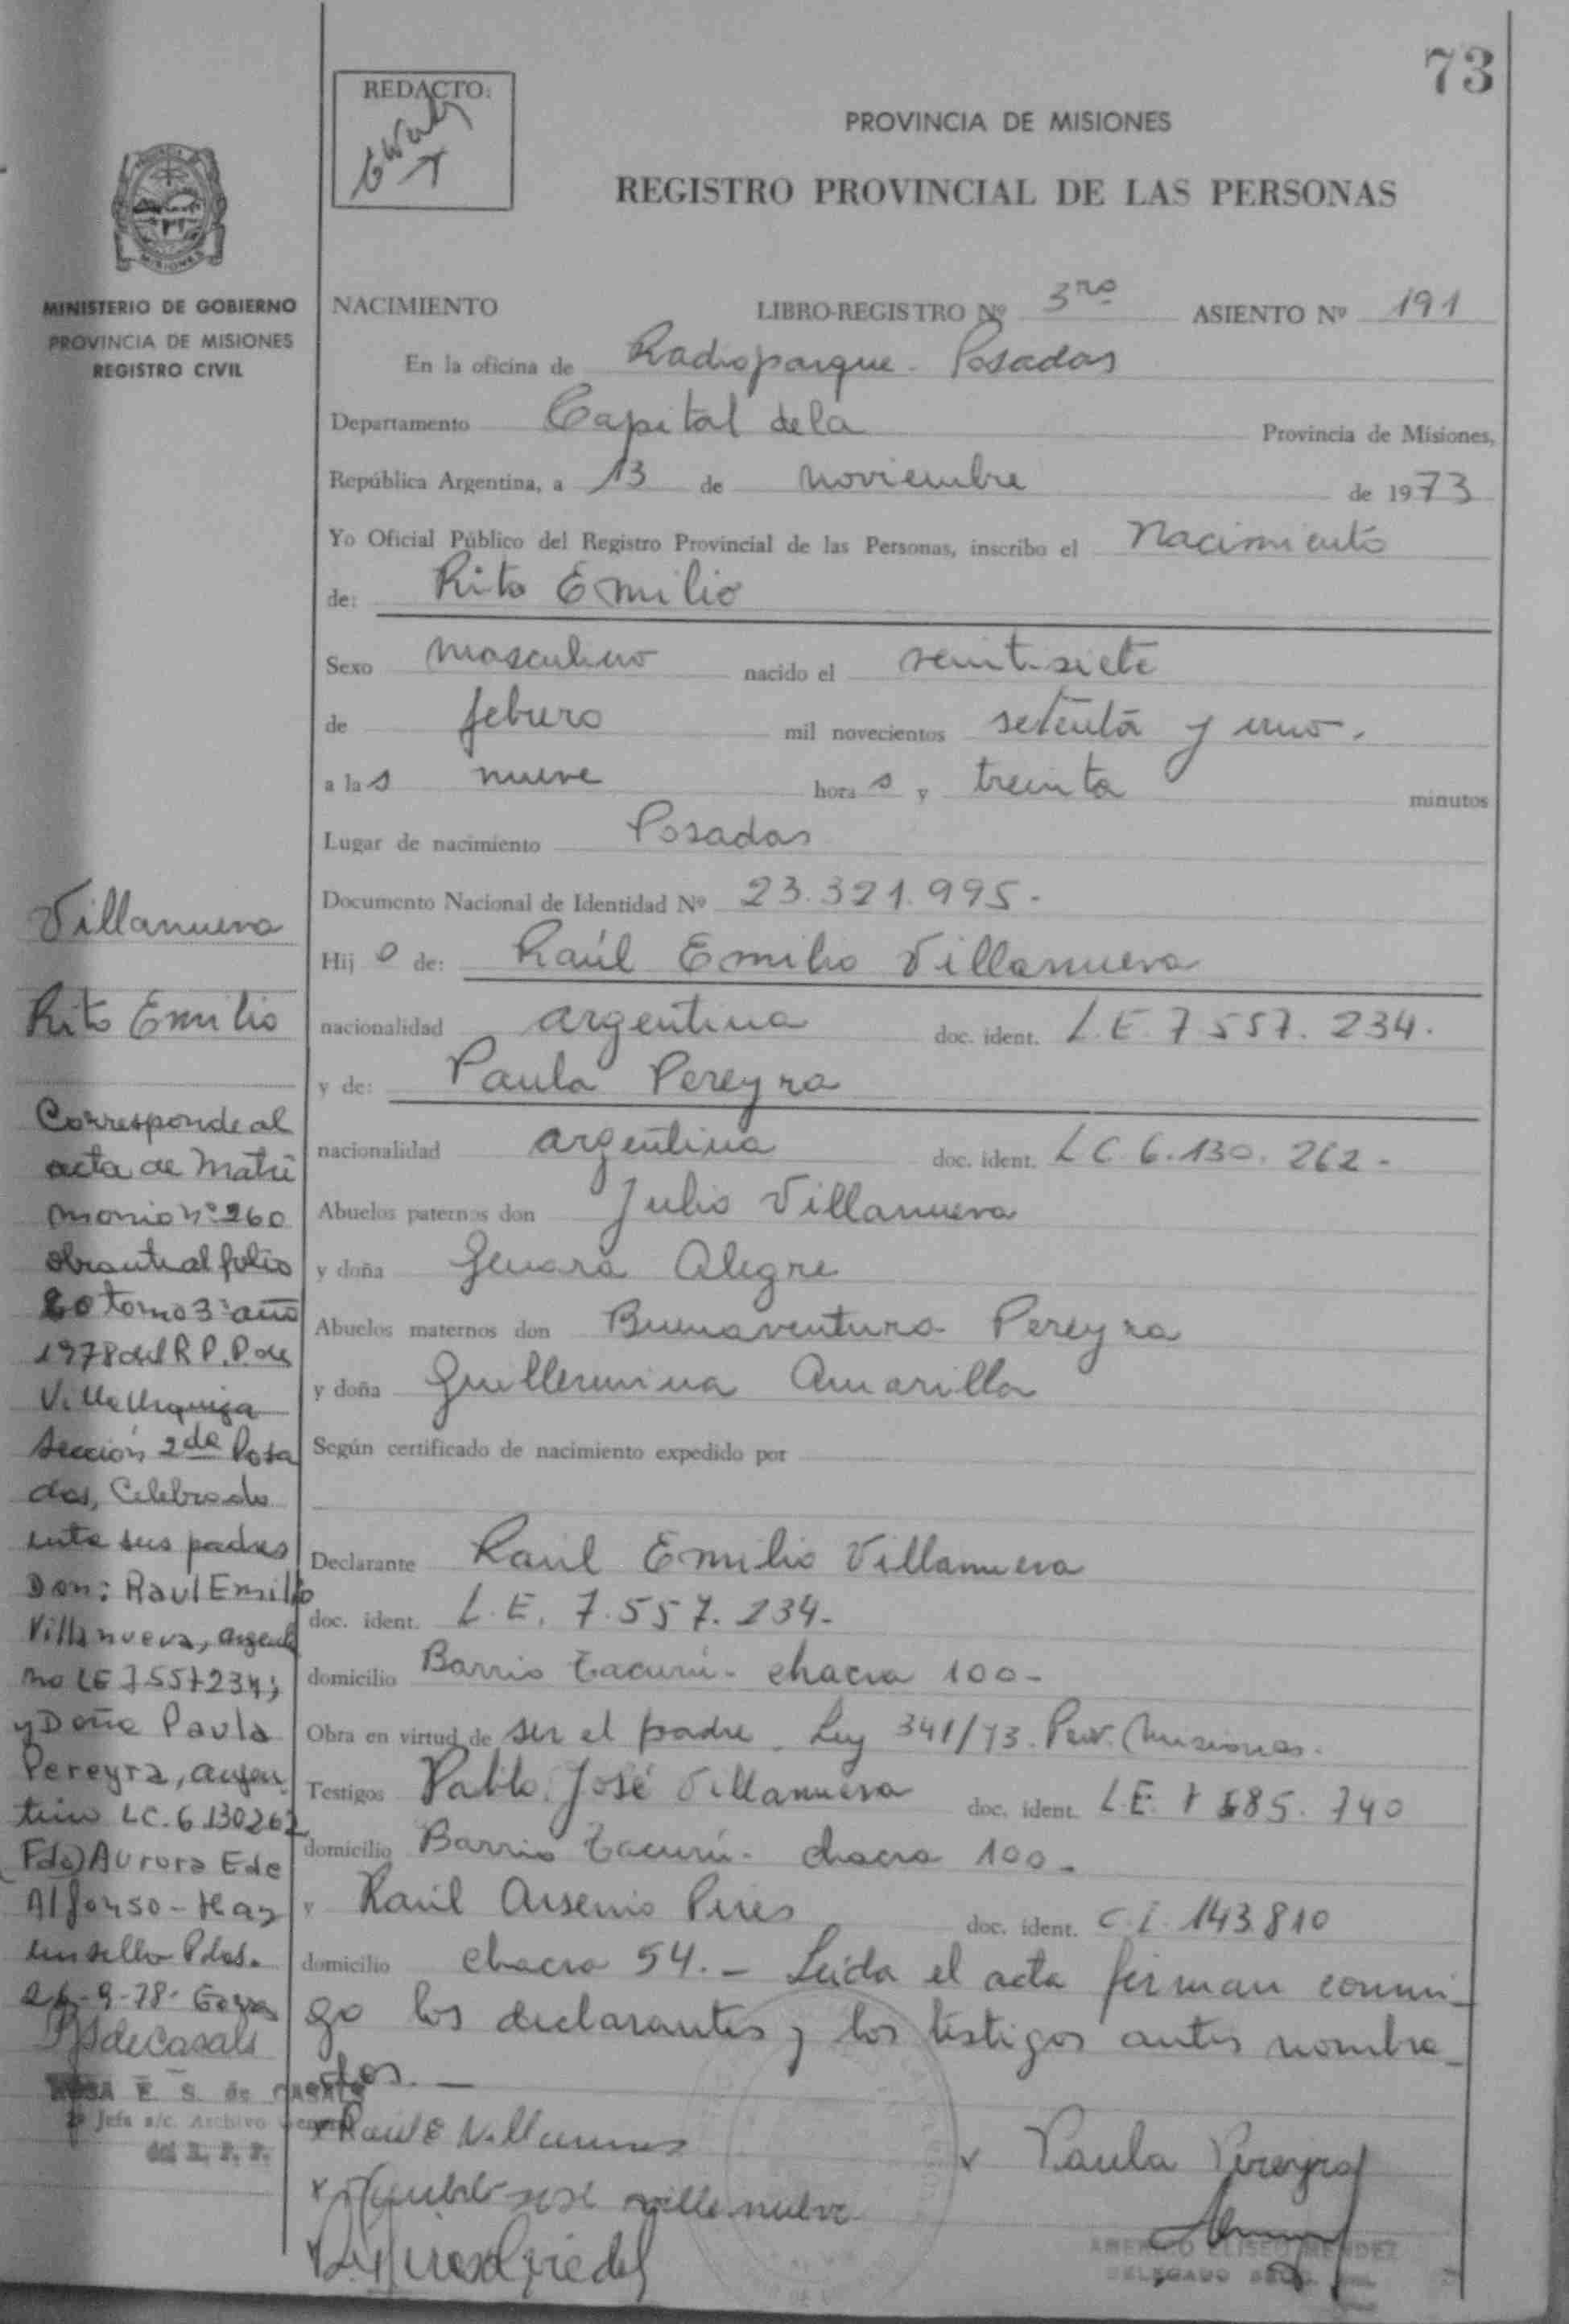 73
REDACTO:
PROVINCIA DE MISIONES
REGISTRO PROVINCIAL DE LAS PERSONAS
MISIONES
MINISTERIO DE GOBIERNO
PROVINCIA DE MISIONES
REGISTRO CIVIL
NACIMIENTO LIBRO-REGISTRO Nº 3ro ASIENTO Nº 191
En la oficina de Radioparque - Posadas
Departamento Capital de la Provincia de Misiones,
República Argentina, a 13 de noviembre de 1973
Yo Oficial Público del Registro Provincial de las Personas, inscribo el Nacimiento
de: Rito Emilio
Sexo masculino nacido el veintisiete
de febrero mil novecientos setenta y uno.
a las nueve horas y treinta minutos
Lugar de nacimiento Posadas
Documento Nacional de Identidad Nº 23.321.995.-
Hijo de: Raúl Emilio Villanueva
nacionalidad argentina doc. ident. L.E. 7.557.234.
y de: Paula Pereyra
nacionalidad argentina doc. ident. LC 6.130.262-
Abuelos paternos don Julio Villanueva
y doña Genara Alegre
Abuelos maternos don Buenaventura Pereyra
y doña Guillermina Amarilla
Según certificado de nacimiento expedido por
Declarante Raúl Emilio Villanueva
doc. ident. L.E. 7.557.234-
domicilio Barrio Tacurú - chacra 100-
Obra en virtud de ser el padre. Ley 341/73. Prov. Misiones.
Testigos Pablo José Villanueva doc. ident. L.E. 7 685.740
domicilio Barrio Tacurú - chacra 100-
y Raúl Arsenio Pires doc. ident. C.I. 143.810
domicilio chacra 54.- Leída el acta firman conmi-
go los declarantes y los testigos antes nombra-
dos.-
Raul E Villanueva
Paula Pereyra
jose villanueva
AMERICO ELISEO MENDEZ
DELEGADO
Villanueva
Rito Emilio
Corresponde al
acta de Matri
monio nº 260
obrante al folio
60 tomo 3º año
1978 del R.P.P. de
Villa Urquiza
Sección 2da Posa
das, Celebrado
entre sus padres
Don: Raul Emilio
Villanueva, argenti
no LE 7557234;
y Doña Paula
Pereyra, argen
tina LC. 6.130262
Fdo) Aurora E de
Alfonso - Hay
un sello Pdas.
-9-78-
de Casals
ROSA E. S. de CASALS
Jefa a/c. Archivo General
del R. P. P.